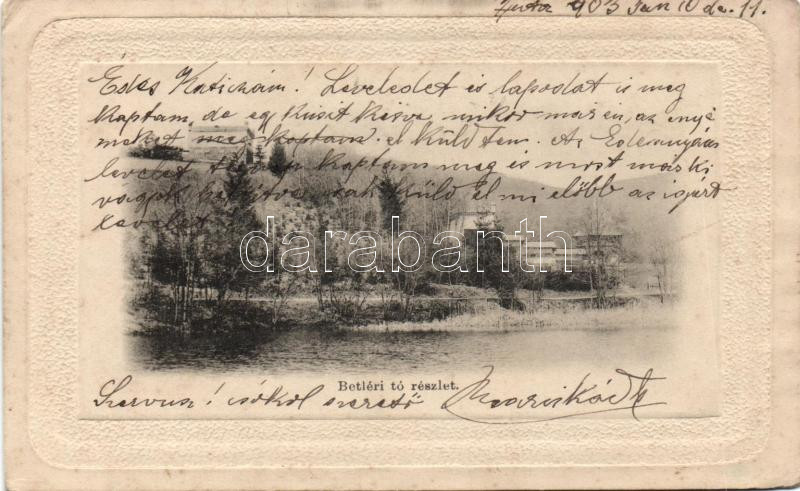 903 Jan 10 de. 11.
Édes Katiczám! Leveledet és lapodat is meg
kaptam, de egy kissit késve, mikor már én az enyé
meket meg kaptam el küldtem. Az Édesanyám
levelet kaptam meg is most már ki
vagyok csak küld el mi előbb az igért
levelet
darabanth
Betléri tó részlet.
Szervusz! csókol szerető Mariskád